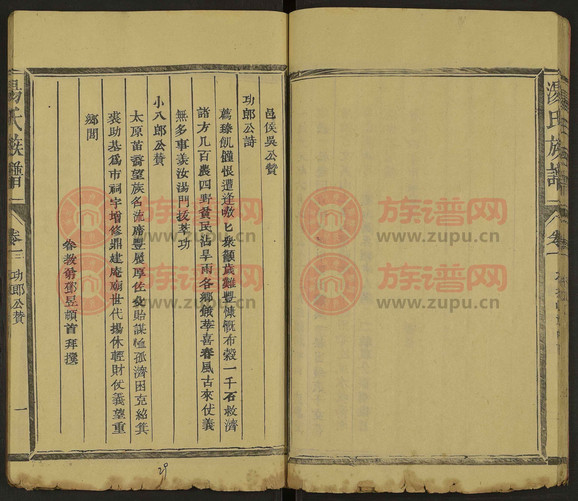 邑侯吳公贊
功郎公詩
薦臻飢饉恨遭逢嗷匕救顑歲難豐慷慨布穀一千石救濟
諸方几百農四野貧民沾旱雨各鄉餓莩喜春風古來仗義
無多事羡汝湯門拔萃功
小八郎公贊
太原苗裔望族名流席豐履厚佐父貽謀恤孤濟困克紹箕
裘助基爲市祠宇增修鼎建庵廟世代揚休輕財仗義望重
鄉閭
春教弟鄧昱頓首拜撰
湯氏族譜
卷三
功郎公贊
一
湯氏族譜
卷一
29
族谱网
www.zupu.cn
族谱网
www.zupu.cn
族谱网
www.zupu.cn
族谱网
www.zupu.cn